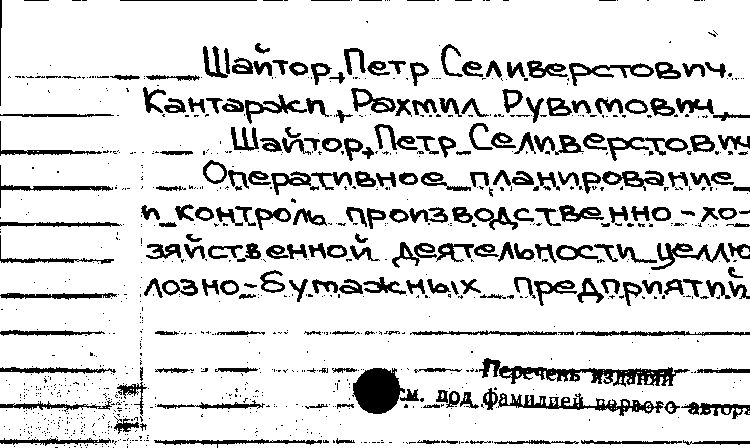 Шайтор, Петр Селиверстович.
Кантаржи, Рахмил Рувимович,
Шайтор, Петр Селиверстович
Оперативное планирование
и контроль производственно-хо-
зяйственной деятельности целлю
лозно-бумажных предприятий
Перечень изданий
см. под фамилией первого автора